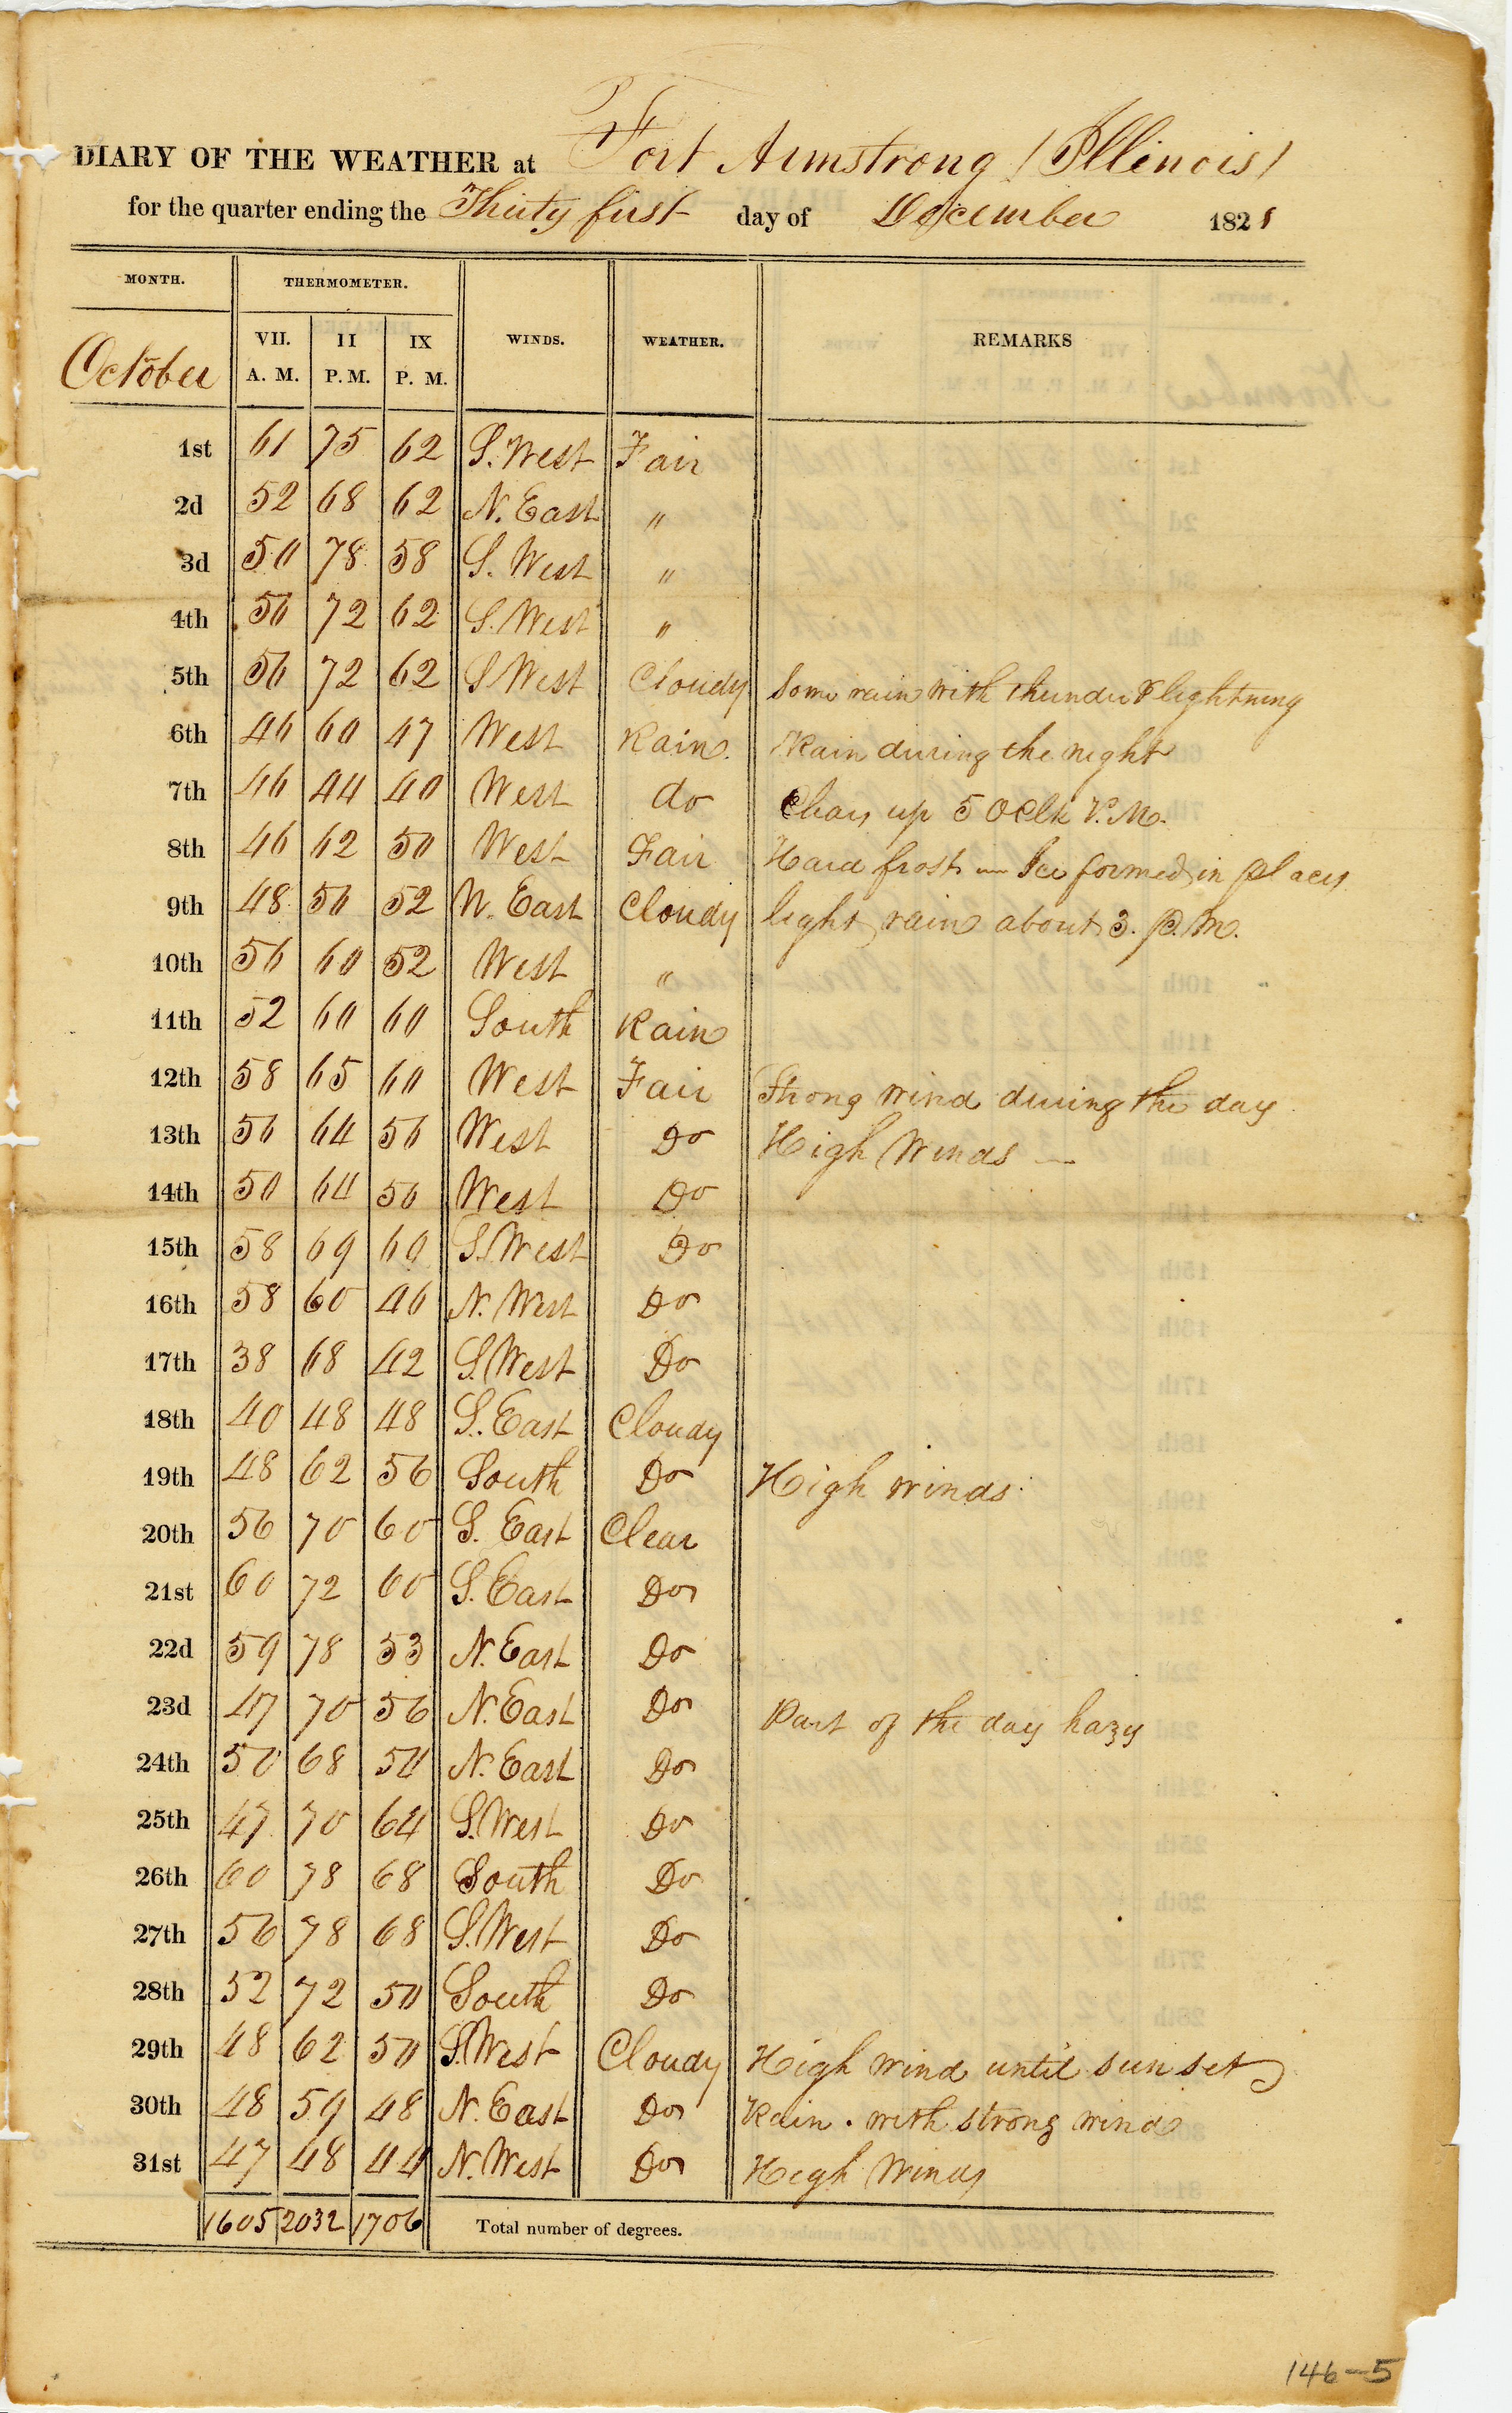 DIARY OF THE WEATHER at Fort Armstrong (Illinois)
for the quarter ending the Thirty first day of December 1821
MONTH. THERMOMETER. WINDS. WEATHER. REMARKS
October VII. A. M. II P. M. IX P. M.
1st 61 75 62 S. West Fair
2d 52 68 62 N. East "
3d 50 78 58 S. West "
4th 56 72 62 S. West "
5th 56 72 62 S West Cloudy Some rain with thunder & lightning
6th 46 60 47 West Rain. Rain during the night
7th 46 44 40 West do Clears up 5 OClk P.M.
8th 46 62 50 West Fair Hard frost — Ice formed in places
9th 48 56 52 N. East Cloudy light rain about 3. p.m.
10th 56 60 52 West "
11th 52 60 60 South Rain
12th 58 65 60 West Fair Strong wind during the day
13th 56 64 56 West Do High Winds —
14th 50 64 56 West Do
15th 58 69 60 S. West Do
16th 58 60 46 N. West Do
17th 38 68 42 S. West Do
18th 40 48 48 S. East Cloudy
19th 48 62 56 South Do High winds
20th 56 70 60 S. East Clear
21st 60 72 60 S. East Do
22d 59 78 53 N. East Do
23d 47 70 56 N. East Do Part of the day hazy
24th 50 68 50 N. East Do
25th 47 70 64 S. West Do
26th 60 78 68 South Do
27th 56 78 68 S. West Do
28th 52 72 50 South Do
29th 48 62 50 S. West Cloudy High wind until sun set
30th 48 59 48 N. East Do Rain. with strong wind
31st 47 48 44 N. West Do High Winds
1605 2032 1706 Total number of degrees.
146-5